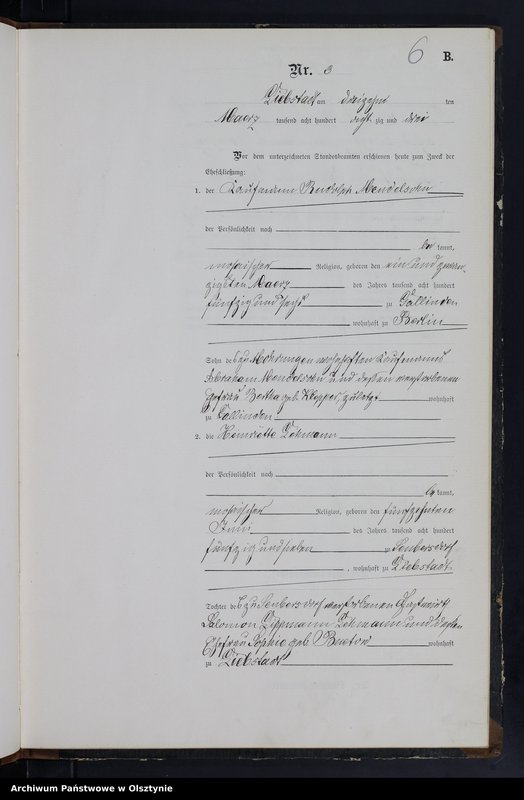 6
B.
Nr. 3
Liebstadt am dreizehn ten
Maerz tausend acht hundert acht zig und drei
Vor dem unterzeichneten Standesbeamten erschienen heute zum Zweck der
Eheschließung:
1. der Kaufmann Rudolph Mendelsohn
der Persönlichkeit nach
be kannt,
mosaischer Religion, geboren den ein und zwan-
zigsten Maerz des Jahres tausend acht hundert
fünfzig und sechs zu Gallinden
wohnhaft zu Berlin
Sohn des zu Mohrungen wohnhaften Kaufmanns
Abraham Mendelsohn und dessen verstorbenen
Ehefrau Bertha geb. Klepper, zuletzt wohnhaft
zu Gallinden
2. die Henriette Lehmann
der Persönlichkeit nach
be kannt,
mosaischer Religion, geboren den fünfzehnten
Juni des Jahres tausend acht hundert
fünfzig und sieben zu Seubersdorf
, wohnhaft zu Liebstadt
Tochter des zu Seubersdorf verstorbenen Gastwirth
Salomon Lippmann Lehmann und dessen
Ehefrau Sophie geb. Buetow wohnhaft
zu Liebstadt
Archiwum Państwowe w Olsztynie